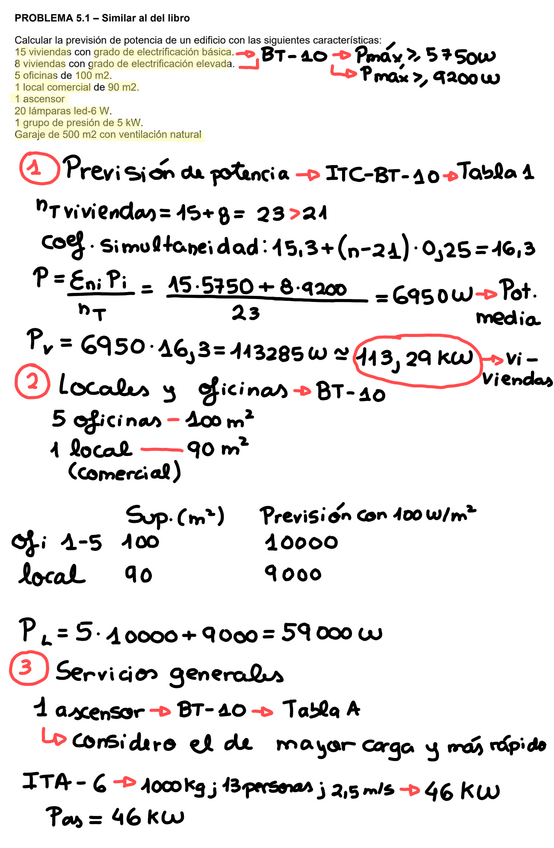 PROBLEMA 5.1 – Similar al del libro
Calcular la previsión de potencia de un edificio con las siguientes características:
15 viviendas con grado de electrificación básica. → BT-10 → Pmáx ≥ 5750W
8 viviendas con grado de electrificación elevada. ↳ Pmáx ≥ 9200W
5 oficinas de 100 m2.
1 local comercial de 90 m2.
1 ascensor
20 lámparas led-6 W.
1 grupo de presión de 5 kW.
Garaje de 500 m2 con ventilación natural
1 Previsión de potencia → ITC-BT-10 → Tabla 1
nT viviendas = 15+8 = 23 > 21
coef. simultaneidad: 15,3+(n-21)·0,25 = 16,3
P = Σni Pi / nT = 15·5750 + 8·9200 / 23 = 6950W → Pot. media
Pv = 6950·16,3 = 113285W ≃ 113,29 KW → vi-viendas
2 Locales y oficinas → BT-10
5 oficinas – 100 m²
1 local — 90 m²
(comercial)
Sup. (m²) Previsión con 100 W/m²
ofi 1-5 100 10000
local 90 9000
PL = 5·10000 + 9000 = 59000 W
3 Servicios generales
1 ascensor → BT-10 → Tabla A
↳ considero el de mayor carga y más rápido
ITA-6 → 1000 Kg ; 13 personas ; 2,5 m/s → 46 KW
Pas = 46 KW